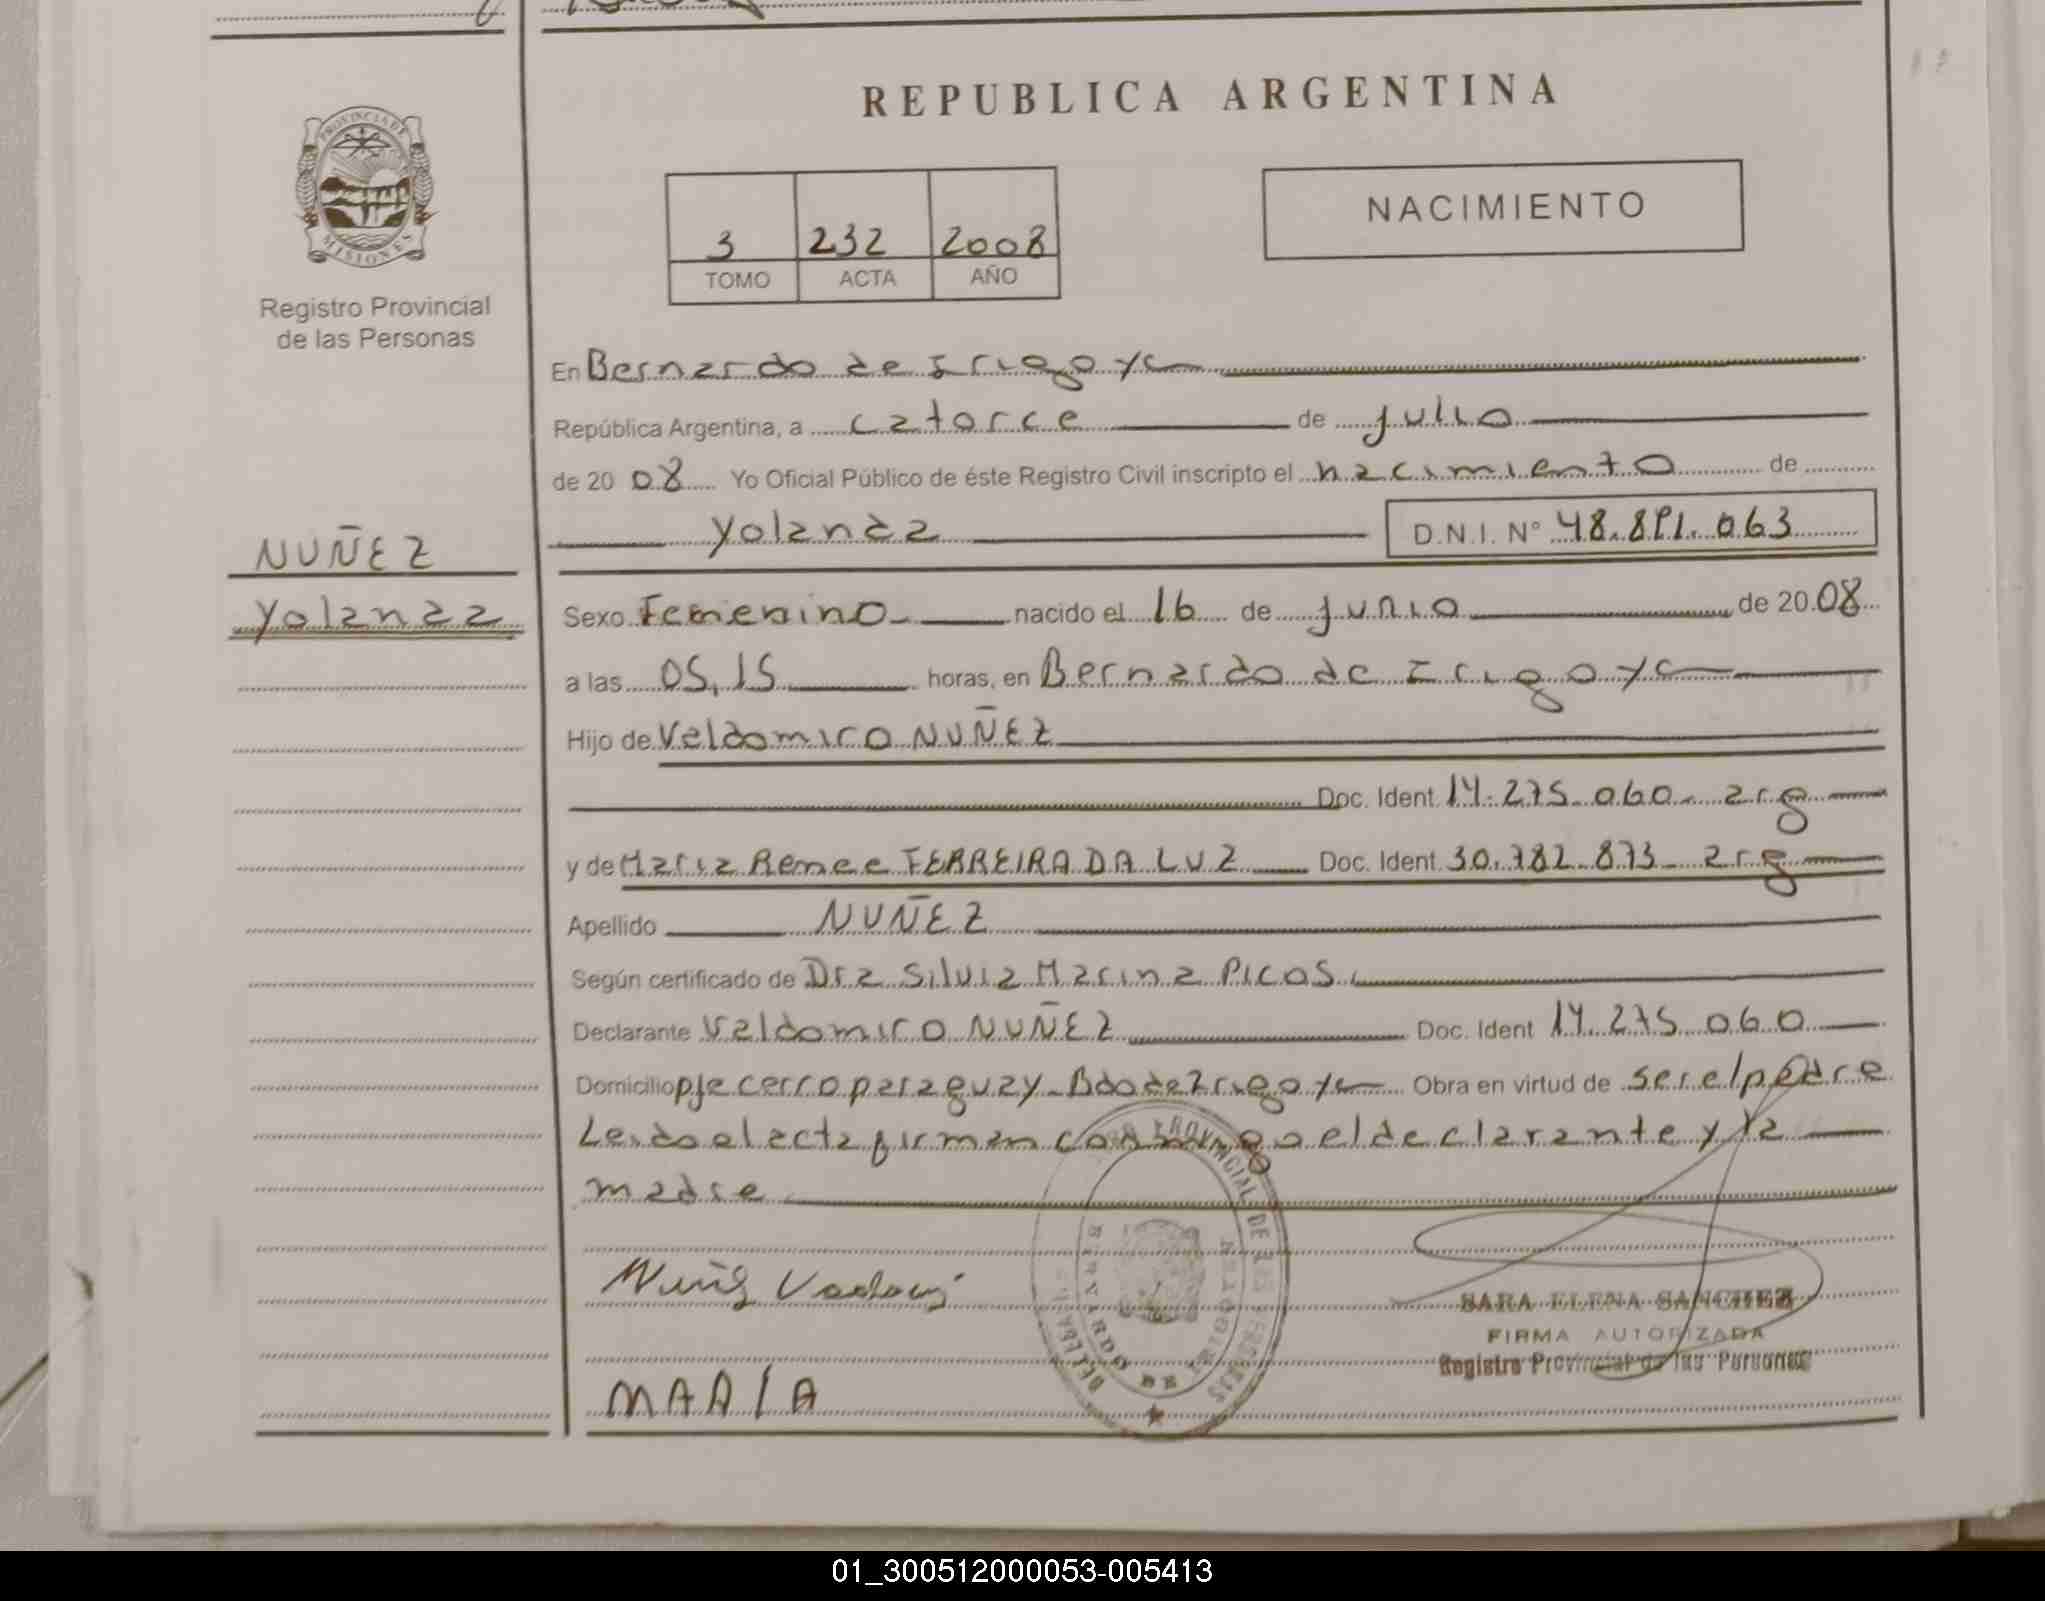 REPUBLICA ARGENTINA
PROVINCIA DE
MISIONES
Registro Provincial
de las Personas
3 232 2008
TOMO ACTA AÑO
NACIMIENTO
En Bernardo de Irigoye
República Argentina, a catorce de julio
de 20 08 Yo Oficial Público de éste Registro Civil inscripto el nacimiento de
Yolanda D.N.I. Nº 48.891.063
NUÑEZ
Yolanda
Sexo Femenino nacido el 16 de junio de 20 08
a las 05,15 horas, en Bernardo de Irigoye
Hijo de Veldomiro NUÑEZ
Doc. Ident. 14.275.060 - arg
y de Maria Renee FERREIRA DA LUZ Doc. Ident. 30.782.873 - arg
Apellido NUÑEZ
Según certificado de Dra Silvia Marina PICOS
Declarante Veldomiro NUÑEZ Doc. Ident 14.275.060
Domicilio pje cerro paraguay - Bdo de Irigoye Obra en virtud de ser el padre
Leido el acta firman conmigo el declarante y la
madre
SARA ELENA SANCHEZ
FIRMA AUTORIZADA
Registro Provincial de las Personas
MARIA
01_300512000053-005413